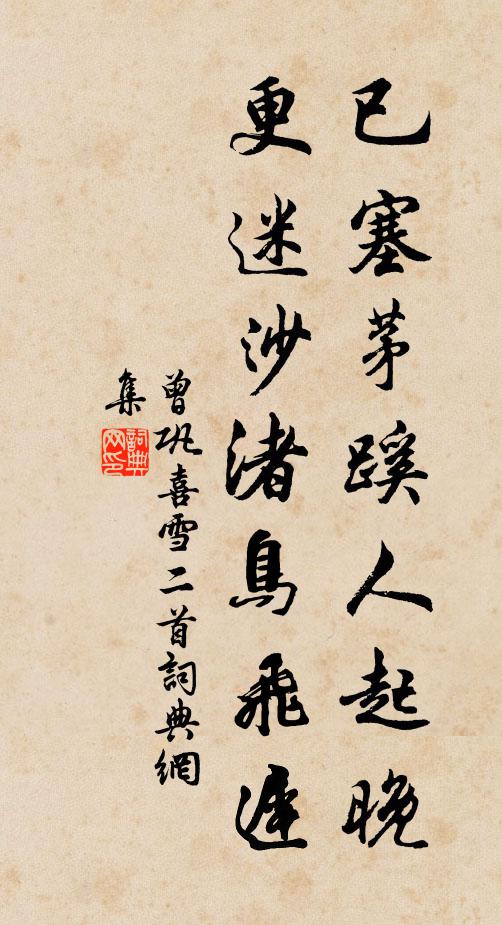 已塞茅蹊人起晚
更迷沙渚鳥飛遲
曾巩喜雪二首詞典網
集
詞典網印